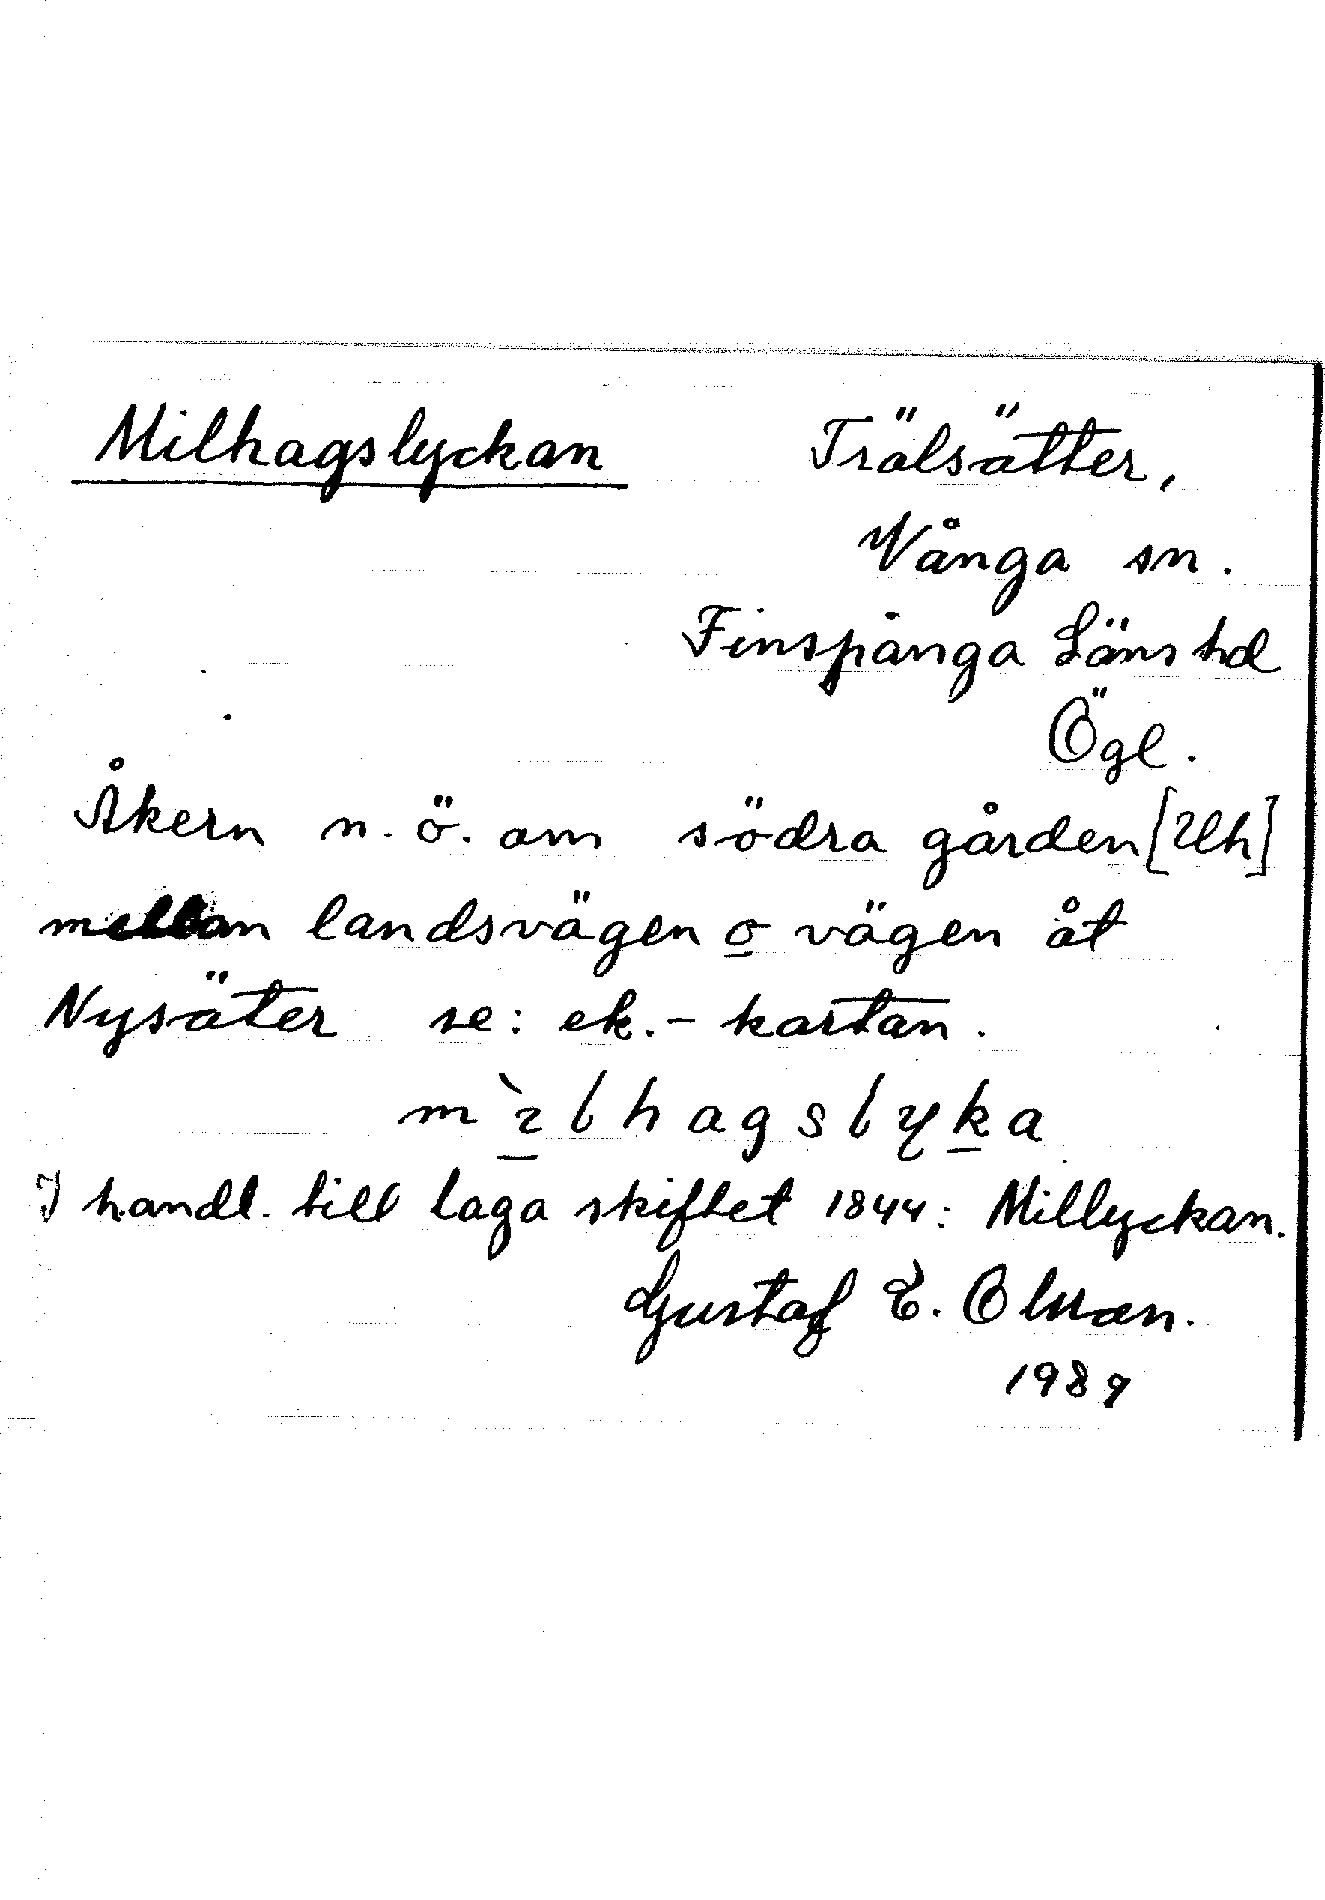 Milhagslyckan Trälsätter,
Vånga sn.
Finspånga Läns hd
Ögl.
Åkern n.ö. om södra gården [Uh]
mellan landsvägen o vägen åt
Nysäter se: ek.-kartan.
mìlhagslyka
I handl. till laga skiftet 1844: Millyckan.
Gustaf E.
1989